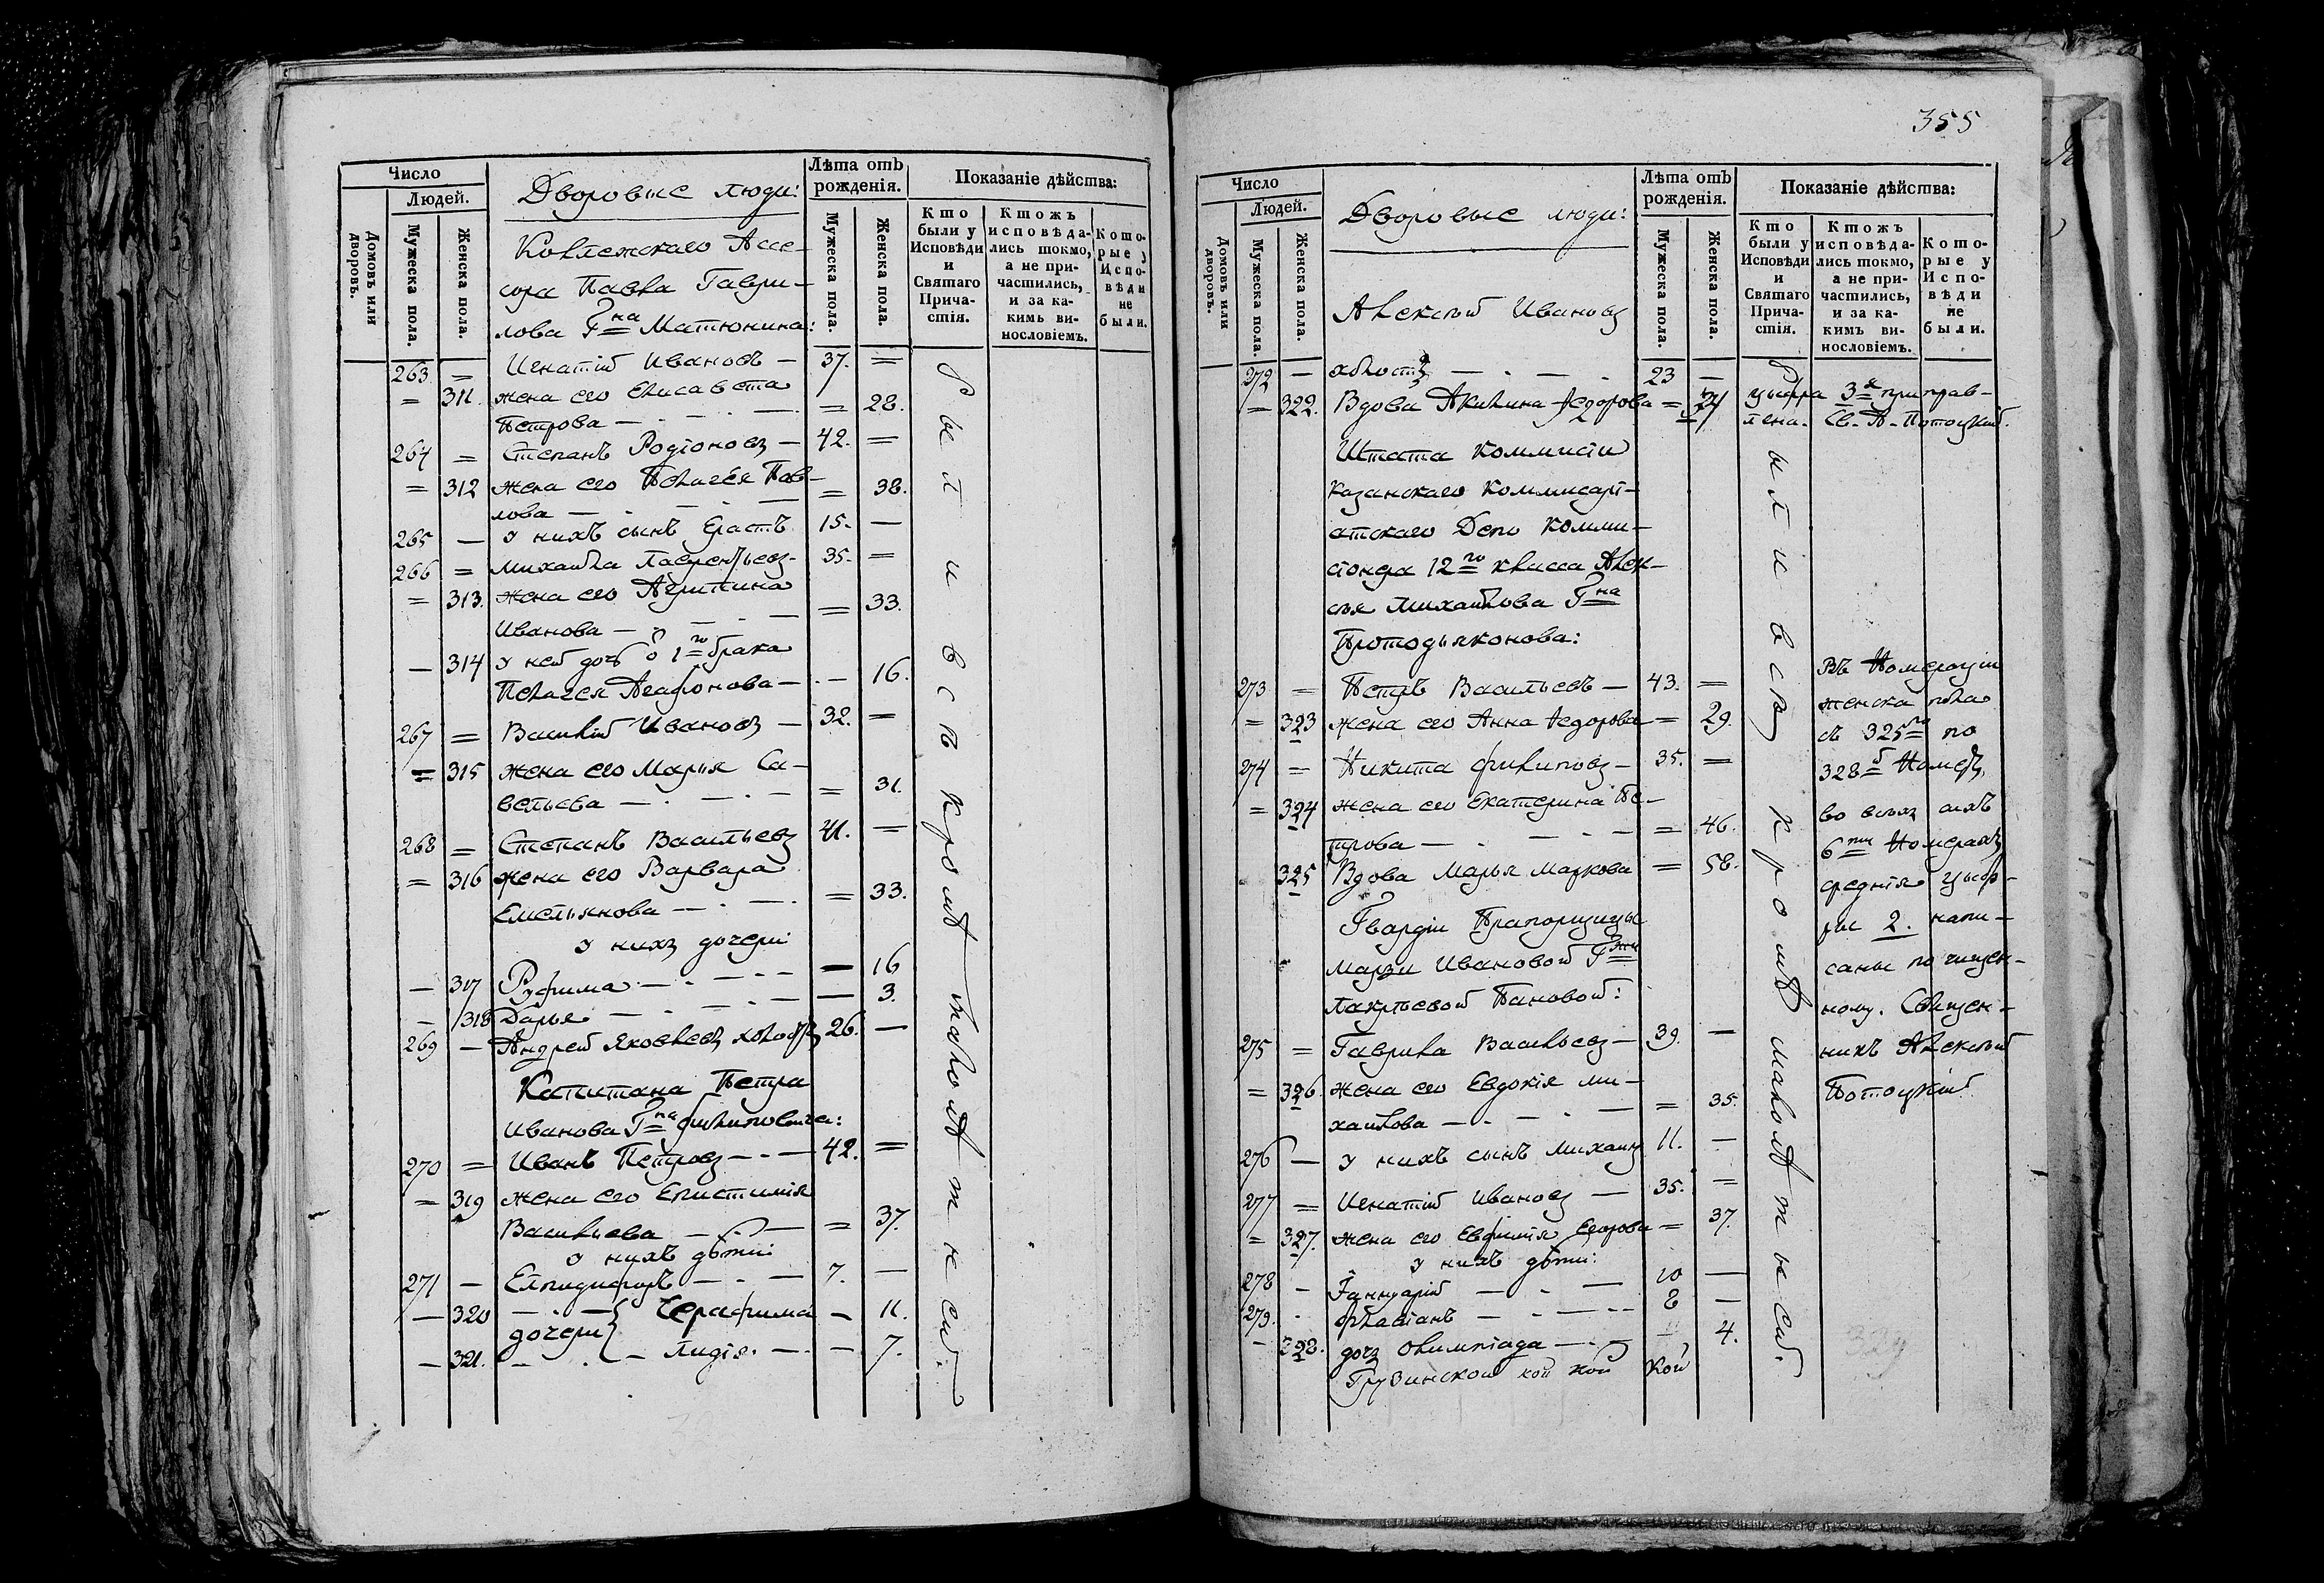 Число
Людей.
Домовъ или дворовъ.
Мужеска пола.
Женска пола.
Дворовые люди:
Лѣта отъ рожденія.
Мужеска пола.
Женска пола.
Показаніе дѣйства:
Кто были у Исповѣди и Святаго Причастія.
Ктожъ исповѣдались токмо, а не причастились, и за какимъ винословіемъ.
Которые у Исповѣди не были.
Коллежскаго Ассе-
сора Павла Гаври-
лова Гна Матюнина:
263. = Игнатій Ивановъ — 37. =
= 311. жена его Елисавета
Петрова — = 28.
264 = Степанъ Родіоновъ — 42. =
= 312 жена его Пелагея Пав-
лова — = 38.
265 — у нихъ сынъ Ерастъ 15. —
266 = Михайла Лаврентьевъ - 35. =
= 313. жена его Агрипина
Иванова — = 33.
— 314 у ней дочь о 1го брака
Пелагея Агафонова — — 16.
267 = Василій Ивановъ — 32. =
= 315 жена его Марья Са-
вельева — = 31.
268 = Степанъ Васильевъ 41. =
= 316 жена его Варвара
Емельянова — = 33.
у нихъ дочери
— 317 Руфима — — 16
— 318 Дарья — — 3.
269 — Андрей Яковлевъ холостъ 26. —
Капитана Петра
Иванова Гна Филиповича:
270 = Иванъ Петровъ — 42. =
= 319 жена его Епистимія
Васильева — = 37.
у нихъ дѣти:
271 — Елпидифоръ — 7. —
— 320 Серафима — 11.
дочери
— 321. — Лидія. — — 7.
были всѣ кромѣ малолѣтнеси.
355
Число
Людей.
Домовъ или дворовъ.
Мужеска пола.
Женска пола.
Дворовые люди:
Лѣта отъ рожденія.
Мужеска пола.
Женска пола.
Показаніе дѣйства:
Кто были у Исповѣди и Святаго Причастія.
Ктожъ исповѣдались токмо, а не причастились, и за какимъ винословіемъ.
Которые у Исповѣди не были.
Алексѣй Ивановъ
272 — холостъ — 23 —
= 322. Вдова Акилина Федорова =
цыфра 3я приправ-
лена. Св. А. Потоцкій.
Штата Коммисіи
Казанскаго Коммисарі-
атскаго Депо Комми-
сіонера 12го класса Алек-
сѣя Михайлова Гна
Протодьяконова:
273 = Петръ Васильевъ — 43. =
= 323 жена его Анна Федорова = 29.
274 = Никита Филиповъ — 35. =
= 324 жена его Екатерина Пе-
трова — = 46.
325 Вдова Марья Маркова = 58.
Гвардіи Прапорщицы
Марьи Ивановой Гжи
Пановой:
275 = Гаврила Васильевъ — 39. —
= 326. жена его Евдокія Ми-
хайлова — = 35.
276 — у нихъ сынъ Михаилъ 11. —
277 = Игнатій Ивановъ — 35. =
= 327. жена его Евфимія Егорова = 37.
у нихъ дѣти:
278 - Іаннуарій — 10 —
279. - Флавіанъ — 8 —
- 328. дочь Олимпіада — 4.
Грузинской кой кой кой
были всѣ кромѣ малолѣтнеси.
Въ Номераціи
женска пола
съ 325го по
328й Номеръ,
во всѣхъ сихъ
6ти Номерахъ
среднія цыф-
ры 2. напи-
саны по чищен-
ному. Священ-
никъ Алексѣй
Потоцкій.
329